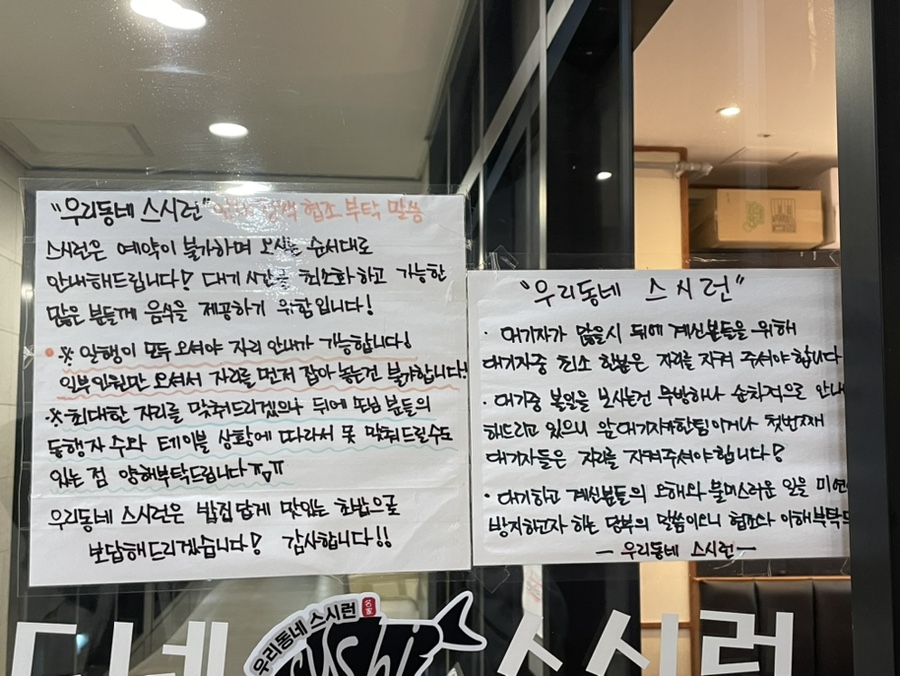 "우리동네 스시런" 협조 부탁 말씀
스시런은 예약이 불가하며 오시는 순서대로
안내해드립니다! 대기 시간을 최소화 하고 가능한
많은 분들께 음식을 제공하기 위함입니다!
※ 일행이 모두 오셔야 자리 안내가 가능합니다!
일부 인원만 오셔서 자리를 먼저 잡아 놓는건 불가합니다!
※ 최대한 자리를 맞춰드리겠으나 뒤에 손님 분들의
동행자 수와 테이블 상황에 따라서 못 맞춰드릴수도
있는 점 양해부탁드립니다 ㅠㅠ
우리동네 스시런은 밥집답게 맛있는 초밥으로
보답해드리겠습니다! 감사합니다!!
"우리동네 스시런"
· 대기자가 많을시 뒤에 계신분들을 위해
대기자중 최소 한분은 자리를 지켜 주셔야합니다
· 대기중 볼일을 보시는건 무방하나 순차적으로 안내
해드리고 있으니 앞대기자가 한팀이거나 첫번째
대기자들은 자리를 지켜주셔야합니다!
· 대기하고 계신분들의 오해와 불미스러운 일을 미연
방지하고자 하는 당부의 말씀이오니 협조와 이해부탁드
— 우리동네 스시런 —
우리동네 스시런
名家
sushi
동네 스시런